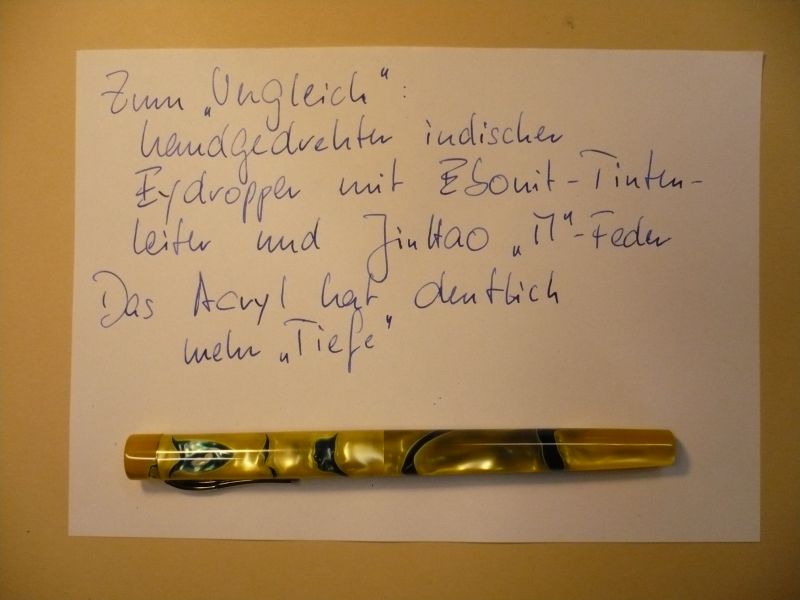 Zum „Vergleich“:
handgedrehter indischer
Eydropper mit Ebonit-Tinten-
leiter und JinHao „M“-Feder
Das Acryl hat deutlich
mehr „Tiefe“